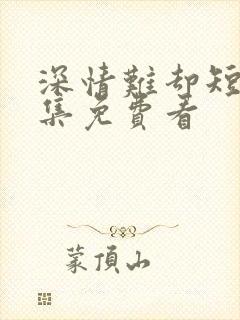 深情難却短
集免費看
蒙頂山